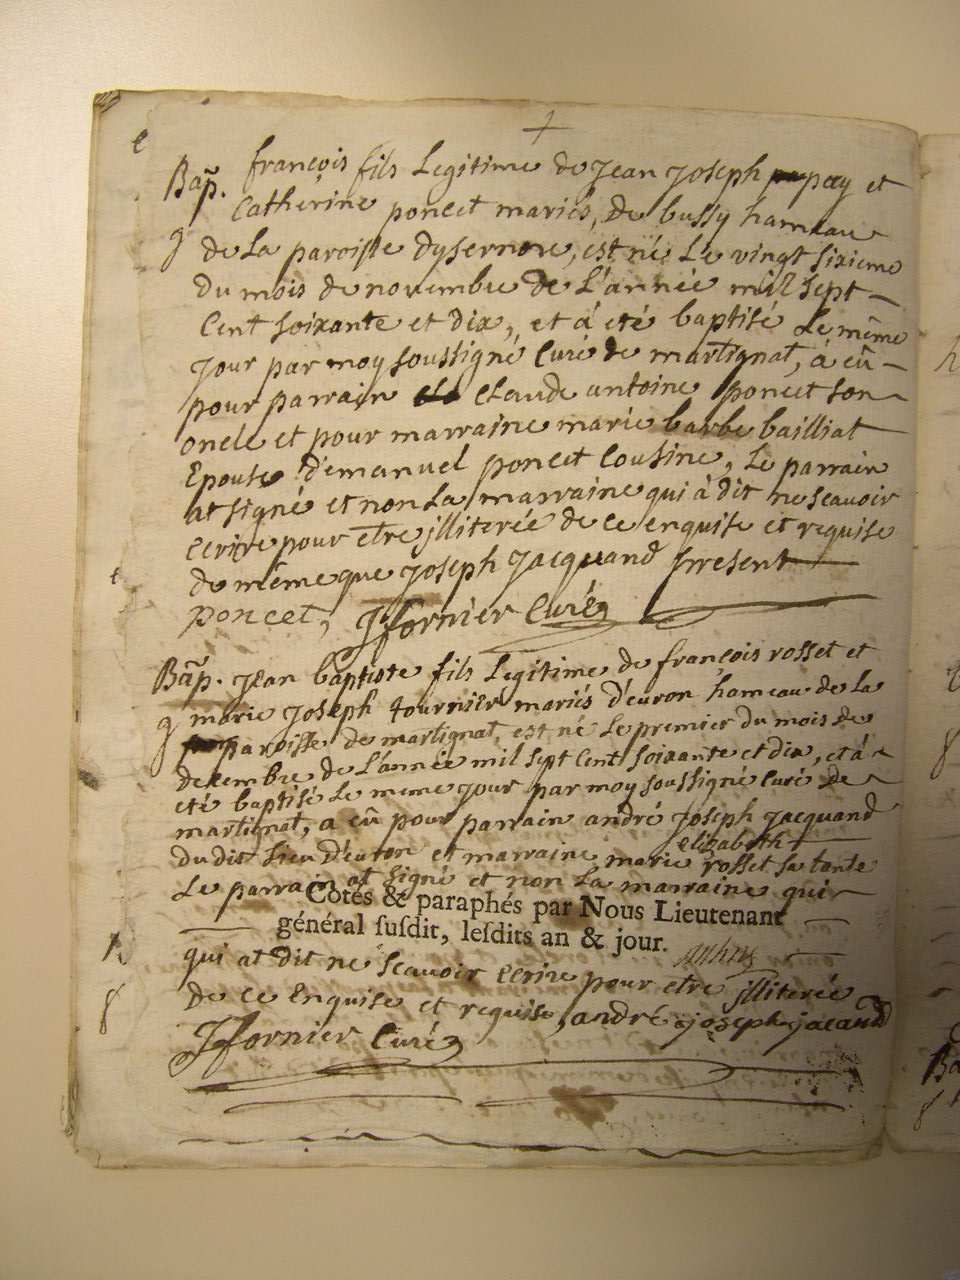 Bap. françois fils Legitime de Jean Joseph pay et
Catherine poncet mariés, de bussy hameau
de La paroisse dysernore, est nés Le vingt sixieme
du mois de novembre de L'année mil sept
Cent soixante et dix, et á eté baptisé Le même
Jour par moy soussigné Curé de martignat, á eû
pour parrain Claude antoine poncet son
oncle et pour marraine marie barbe bailliat
Epouse d'emanuel poncet Cousine, Le parrain
at signé et non La marraine qui à dit ne scavoir
ecrire pour etre jlliterée de ce enquise et requise
de même que Joseph Jacquand present
poncet, Jffornier Curé
Bap. Jean baptiste fils Legitime de françois rosset et
marie Joseph tournier mariés d'evron hameau de La
paroisse de martignat, est né Le premier du mois de
decembre de L'année mil sept Cent soixante et dix, et á
eté baptisé Le meme Jour par moy soussigné Curé de
martignat, a eû pour parrain andré Joseph Jacquand
du dit Lieu d'evron et marraine marie elizabeth rosset sa tante
Le parrain at signé et non La marraine qui
Cotés & paraphés par Nous Lieutenant
général ſuſdit, leſdits an & jour.
qui at dit ne scavoir ecrire pour etre jlliterée
de ce Enquise et requise, andré joseph jacand
Jffornier Curé